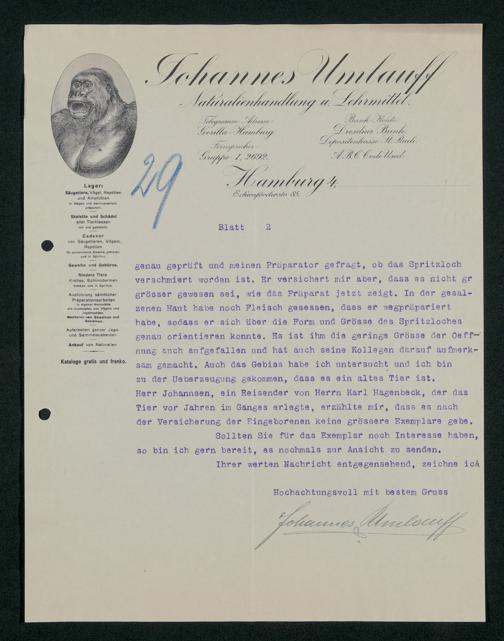 Johannes Umlauff
Naturalienhandlung u. Lehrmittel.
Telegramm-Adresse:
Gorilla-Hamburg
Fernsprecher:
Gruppe 1, 2692.
Bank-Konto:
Dresdner Bank
Depositenkasse St. Pauli.
A.B.C. Code Used.
Hamburg 4,
29
Lager:
Säugetiere, Vögel, Reptilien
und Amphibien
Skelette und Schädel
aller Tierklassen
Cadaver
von Säugetieren, Vögeln,
Reptilien
Geweihe und Gehörne.
Niedere Tiere
Ausführung sämtlicher
Präparatorenarbeiten
Aufarbeiten ganzer Jagd-
und Sammelausbeuten
Ankauf von Naturalien
Kataloge gratis und franko.
Blatt 2
genau geprüft und meinen Präparator gefragt, ob das Spritzloch
verschmiert worden ist. Er versichert mir aber, dass es nicht gr
grösser gewesen sei, wie das Präparat jetzt zeigt. In der gesal-
zenen Haut habe noch Fleisch gesessen, dass er wegpräpariert
habe, sodass er sich über die Form und Grösse des Spritzloches
genau orientieren konnte. Es ist ihm die geringe Grösse der Oeff-
nung auch aufgefallen und hat auch seine Kollegen darauf aufmerk-
sam gemacht. Auch das Gebiss habe ich untersucht und ich bin
zu der Ueberzeugung gekommen, dass es ein altes Tier ist.
Herr Johannsen, ein Reisender von Herrn Karl Hagenbeck, der das
Tier vor Jahren im Ganges erlegte, erzählte mir, dass es nach
der Versicherung der Eingeborenen keine grössere Exemplare gebe.
Sollten Sie für das Exemplar noch Interesse haben,
so bin ich gern bereit, es nochmals zur Ansicht zu senden.
Ihrer werten Nachricht entgegensehend, zeichne ich
Hochachtungsvoll mit bestem Gruss
Johannes Umlauff